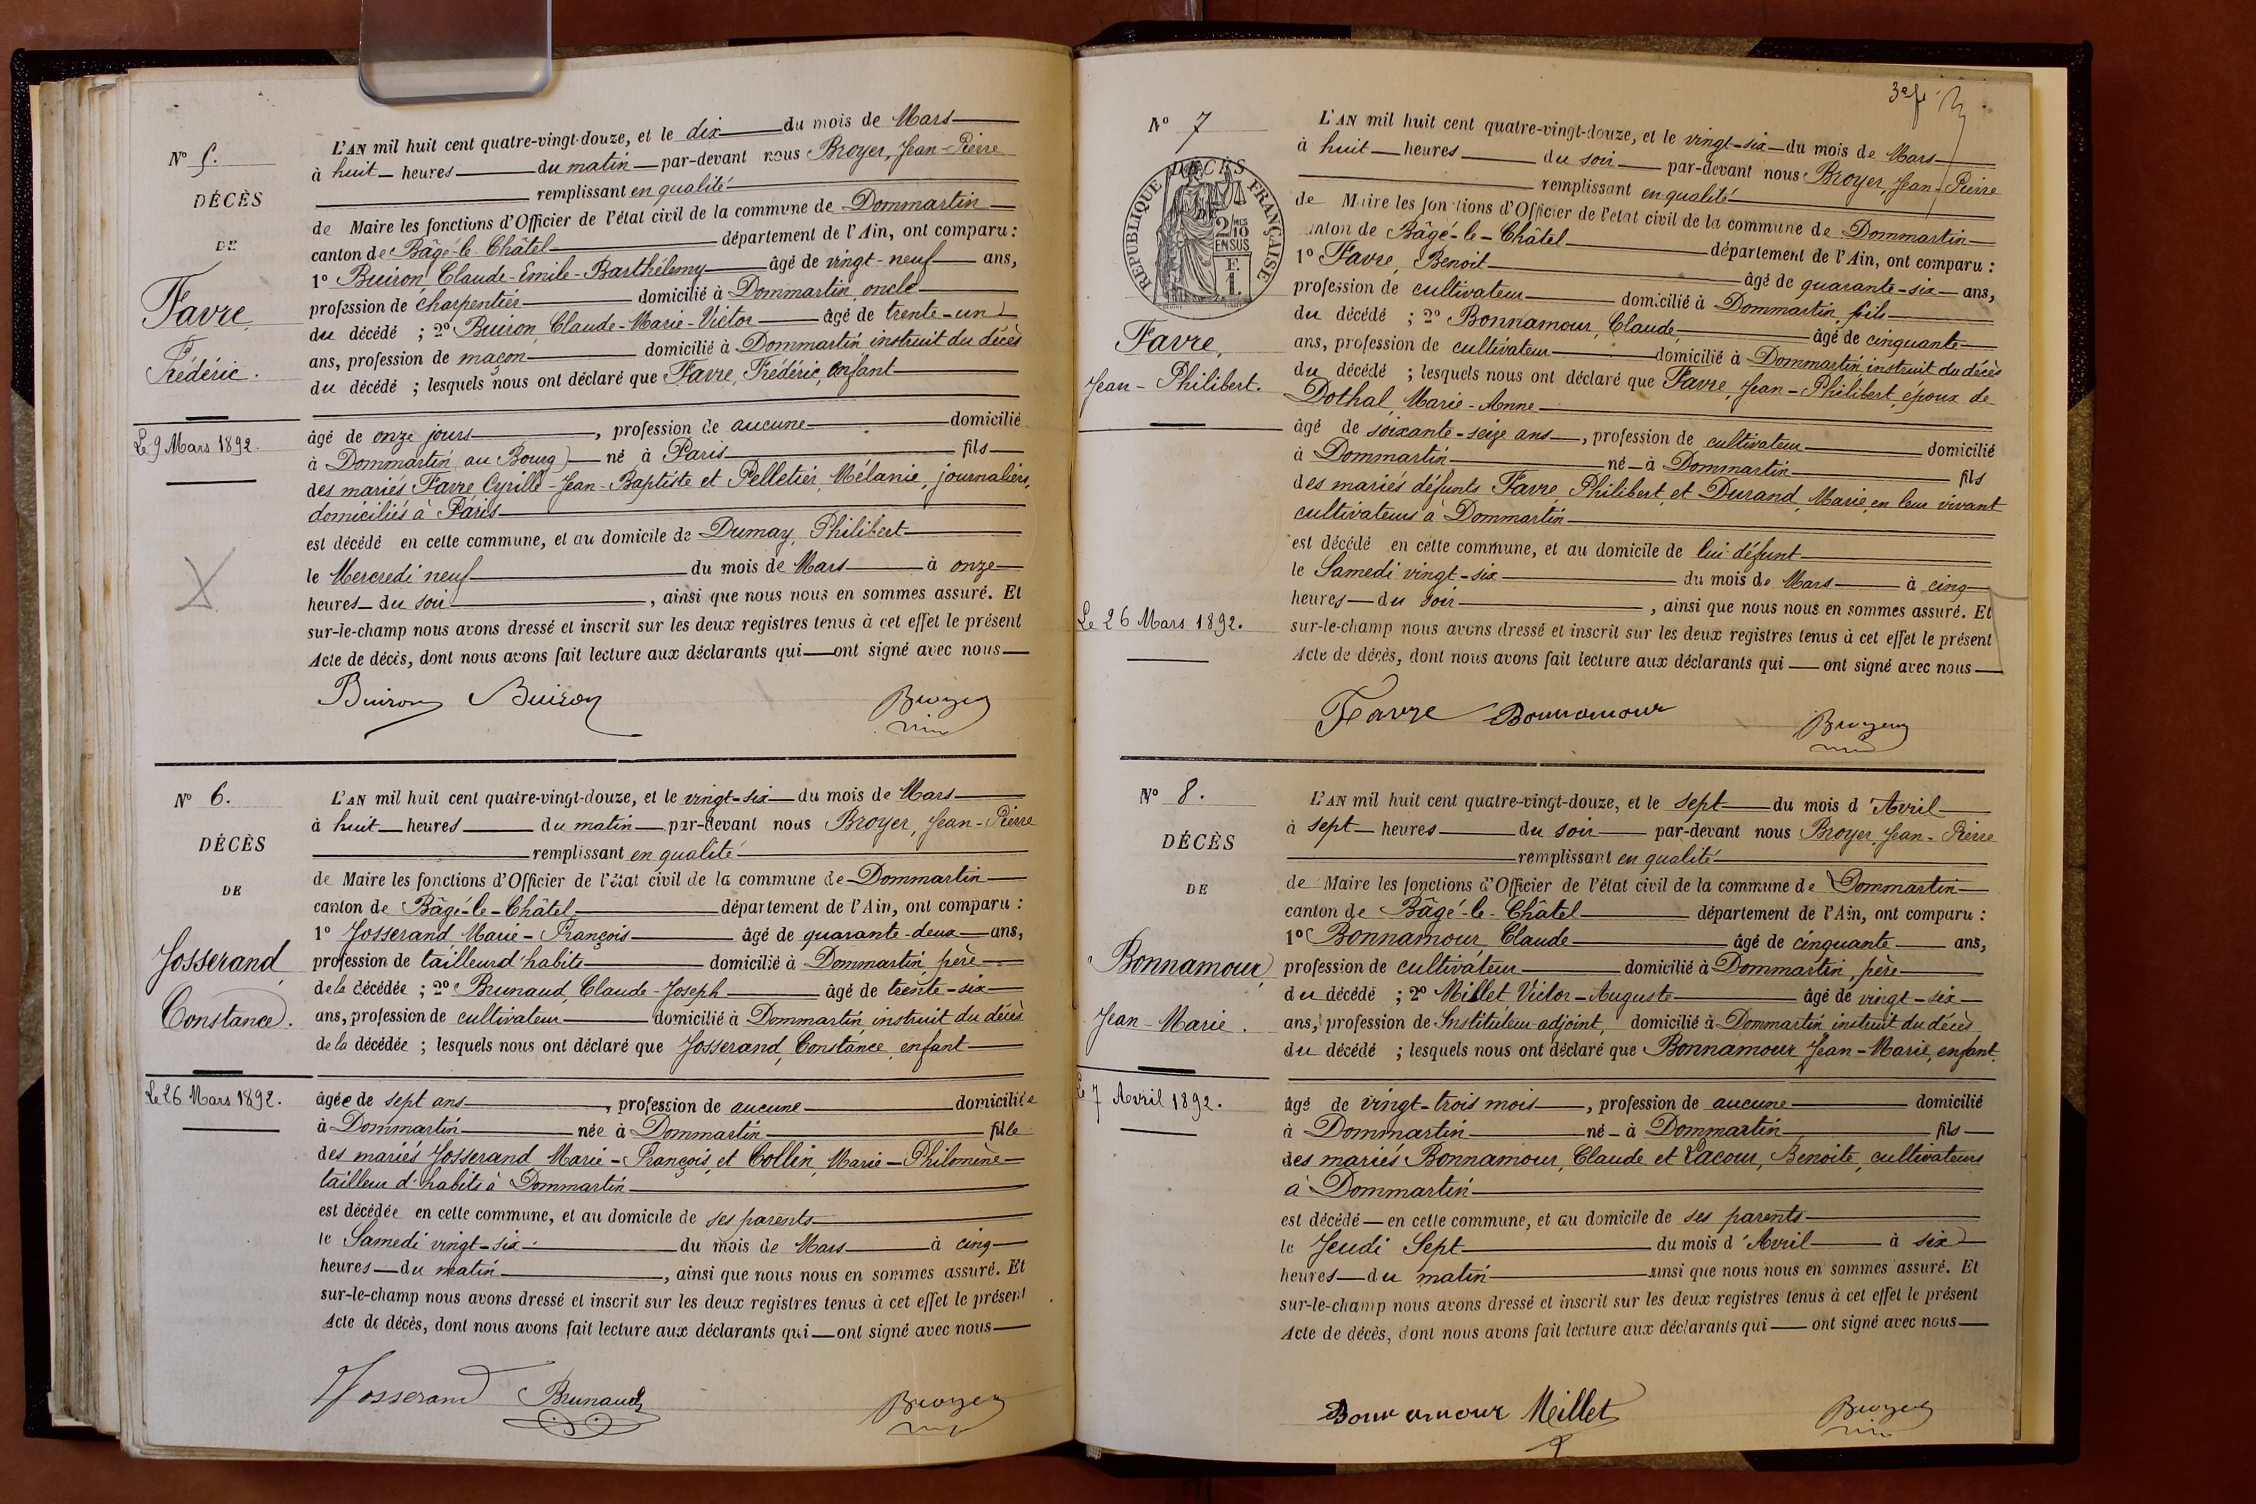 N° 5.
DÉCÈS
DE
Favre
Frédéric.
Le 9 Mars 1892.
L'AN mil huit cent quatre-vingt-douze, et le dix du mois de Mars
à huit heures du matin par-devant nous Broyer, Jean-Pierre
remplissant en qualité
de Maire les fonctions d'Officier de l'état civil de la commune de Dommartin
canton de Bâgé-le-Châtel département de l'Ain, ont comparu :
1° Buiron, Claude-Emile-Barthélemy âgé de vingt-neuf ans,
profession de charpentier domicilié à Dommartin, oncle
du décédé ; 2° Buiron, Claude-Marie-Victor âgé de trente-un
ans, profession de maçon domicilié à Dommartin instruit du décès
du décédé ; lesquels nous ont déclaré que Favre, Frédéric, enfant
âgé de onze jours, profession de aucune domicilié
à Dommartin (au Bourg) né à Paris fils
des mariés Favre, Cyrille-Jean-Baptiste et Pelletier, Mélanie, journaliers,
domiciliés à Paris
est décédé en cette commune, et au domicile de Dumay, Philibert
le Mercredi neuf du mois de Mars à onze
heures du soir, ainsi que nous nous en sommes assuré. Et
sur-le-champ nous avons dressé et inscrit sur les deux registres tenus à cet effet le présent
Acte de décès, dont nous avons fait lecture aux déclarants qui ont signé avec nous
Buiron Buiron Broyer
N° 6.
DÉCÈS
DE
Josserand,
Constance.
Le 26 Mars 1892.
L'AN mil huit cent quatre-vingt-douze, et le vingt-six du mois de Mars
à huit heures du matin par-devant nous Broyer, Jean-Pierre
remplissant en qualité
de Maire les fonctions d'Officier de l'état civil de la commune de Dommartin
canton de Bâgé-le-Châtel département de l'Ain, ont comparu :
1° Josserand, Marie-François âgé de quarante-deux ans,
profession de tailleur d'habits domicilié à Dommartin, père
de la décédée ; 2° Brunaud, Claude-Joseph âgé de trente-six
ans, profession de cultivateur domicilié à Dommartin, instruit du décès
de la décédée ; lesquels nous ont déclaré que Josserand, Constance, enfant
âgée de sept ans, profession de aucune domiciliée
à Dommartin née à Dommartin fille
des mariés Josserand Marie-François, et Collin, Marie-Philomène
tailleur d'habits à Dommartin
est décédée en cette commune, et au domicile de ses parents
le Samedi vingt-six du mois de Mars à cinq
heures du matin, ainsi que nous nous en sommes assuré. Et
sur-le-champ nous avons dressé et inscrit sur les deux registres tenus à cet effet le présent
Acte de décès, dont nous avons fait lecture aux déclarants qui ont signé avec nous
Josserand Brunaud Broyer
N° 7
DÉCÈS
RÉPUBLIQUE FRANÇAISE
2/10 EN SUS
F.
1.
Favre,
Jean-Philibert.
Le 26 Mars 1892.
L'AN mil huit cent quatre-vingt-douze, et le vingt-six du mois de Mars
à huit heures du soir par-devant nous Broyer, Jean-Pierre
remplissant en qualité
de Maire les fonctions d'Officier de l'état civil de la commune de Dommartin
canton de Bâgé-le-Châtel département de l'Ain, ont comparu :
1° Favre, Benoit âgé de quarante-six ans,
profession de cultivateur domicilié à Dommartin, fils
du décédé ; 2° Bonnamour, Claude, âgé de cinquante
ans, profession de cultivateur domicilié à Dommartin instruit du décès
du décédé ; lesquels nous ont déclaré que Favre, Jean-Philibert, époux de
Dothal, Marie-Anne
âgé de soixante-seize ans, profession de cultivateur domicilié
à Dommartin né à Dommartin fils
des mariés défunts Favre, Philibert, et Durand, Marie, en leur vivant
cultivateurs à Dommartin
est décédé en cette commune, et au domicile de lui défunt
le Samedi vingt-six du mois de Mars à cinq
heures du soir, ainsi que nous nous en sommes assuré. Et
sur-le-champ nous avons dressé et inscrit sur les deux registres tenus à cet effet le présent
Acte de décès, dont nous avons fait lecture aux déclarants qui ont signé avec nous
Favre Bonnamour Broyer
N° 8.
DÉCÈS
DE
Bonnamour,
Jean-Marie.
Le 7 Avril 1892.
L'AN mil huit cent quatre-vingt-douze, et le sept du mois d'Avril
à sept heures du soir par-devant nous Broyer, Jean-Pierre
remplissant en qualité
de Maire les fonctions d'Officier de l'état civil de la commune de Dommartin
canton de Bâgé-le-Châtel département de l'Ain, ont comparu :
1° Bonnamour, Claude âgé de cinquante ans,
profession de cultivateur domicilié à Dommartin, père
du décédé ; 2° Millet, Victor-Auguste âgé de vingt-six
ans, profession de Instituteur-adjoint, domicilié à Dommartin instruit du décès
du décédé ; lesquels nous ont déclaré que Bonnamour, Jean-Marie, enfant.
âgé de vingt-trois mois, profession de aucune domicilié
à Dommartin né à Dommartin fils
des mariés Bonnamour, Claude et Lacour, Benoite, cultivateurs
à Dommartin
est décédé en cette commune, et au domicile de ses parents
le Jeudi Sept du mois d'Avril à six
heures du matin ainsi que nous nous en sommes assuré. Et
sur-le-champ nous avons dressé et inscrit sur les deux registres tenus à cet effet le présent
Acte de décès, dont nous avons fait lecture aux déclarants qui ont signé avec nous
Bonnamour Meillet Broyer